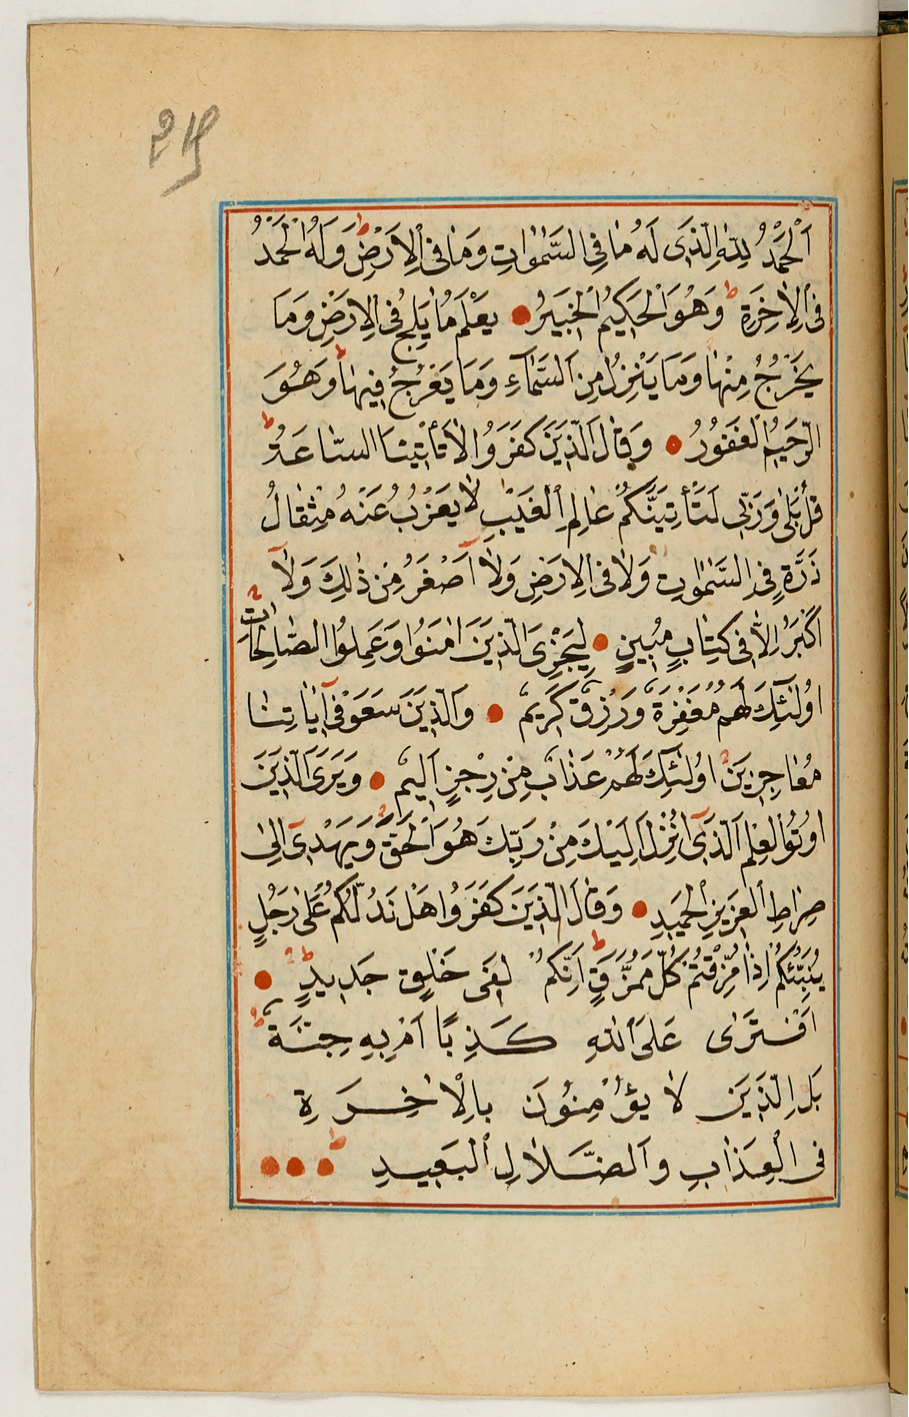 219
اَلْحَمْدُ لِلّٰهِ الَّذٖى لَهُ مَا فِى السَّمٰوَاتِ وَمَا فِى الْاَرْضِ وَلَهُ الْحَمْدُ
فِى الْاٰخِرَةِ وَهُوَ الْحَكٖيمُ الْخَبٖيرُ ● يَعْلَمُ مَا يَلِجُ فِى الْاَرْضِ وَمَا
يَخْرُجُ مِنْهَا وَمَا يَنْزِلُ مِنَ السَّمَآءِ وَمَا يَعْرُجُ فٖيهَا وَهُوَ
الرَّحٖيمُ الْغَفُورُ ● وَقَالَ الَّذٖينَ كَفَرُوا لَا تَأْتٖينَا السَّاعَةُ
قُلْ بَلٰى وَرَبّٖى لَتَأْتِيَنَّكُمْ عَالِمِ الْغَيْبِ لَا يَعْزُبُ عَنْهُ مِثْقَالُ
ذَرَّةٍ فِى السَّمٰوَاتِ وَلَا فِى الْاَرْضِ وَلَآ اَصْغَرُ مِنْ ذٰلِكَ وَلَآ
اَكْبَرُ اِلَّا فٖى كِتَابٍ مُبٖينٍ ● لِيَجْزِىَ الَّذٖينَ اٰمَنُوا وَعَمِلُوا الصَّالِحَاتِ
اُولٰٓئِكَ لَهُمْ مَغْفِرَةٌ وَرِزْقٌ كَرٖيمٌ ● وَالَّذٖينَ سَعَوْ فٖٓى اٰيَاتِنَا
مُعَاجِزٖينَ اُولٰٓئِكَ لَهُمْ عَذَابٌ مِنْ رِجْزٍ اَلٖيمٌ ● وَيَرَى الَّذٖينَ
اُوتُوا الْعِلْمَ الَّذٖٓى اُنْزِلَ اِلَيْكَ مِنْ رَبِّكَ هُوَ الْحَقَّ وَيَهْدٖٓى اِلٰى
صِرَاطِ الْعَزٖيزِ الْحَمٖيدِ ● وَقَالَ الَّذٖينَ كَفَرُوا هَلْ نَدُلُّكُمْ عَلٰى رَجُلٍ
يُنَبِّئُكُمْ اِذَا مُزِّقْتُمْ كُلَّ مُمَزَّقٍ اِنَّكُمْ لَفٖى خَلْقٍ جَدٖيدٍ ●
اَفْتَرٰى عَلَى اللّٰهِ كَذِبًا اَمْ بِهٖ جِنَّةٌ
بَلِ الَّذٖينَ لَا يُؤْمِنُونَ بِالْاٰخِرَةِ
فِى الْعَذَابِ وَالضَّلَالِ الْبَعٖيدِ ● ● ●